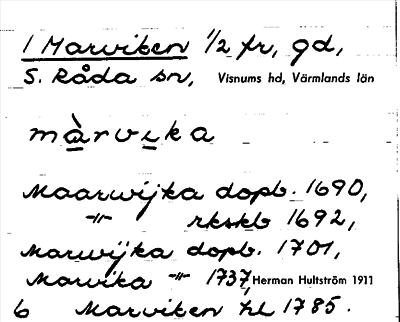 1 Marviken 1/2 fr, gd,
S. Råda sn, Visnums hd, Värmlands län
màrvika
Maarwijka dopb. 1690,
-"- rkskb 1692,
Marwijka dopb. 1701,
Marvika -"- 1737, Herman Hultström 1911
6 Marviken hl 1785.